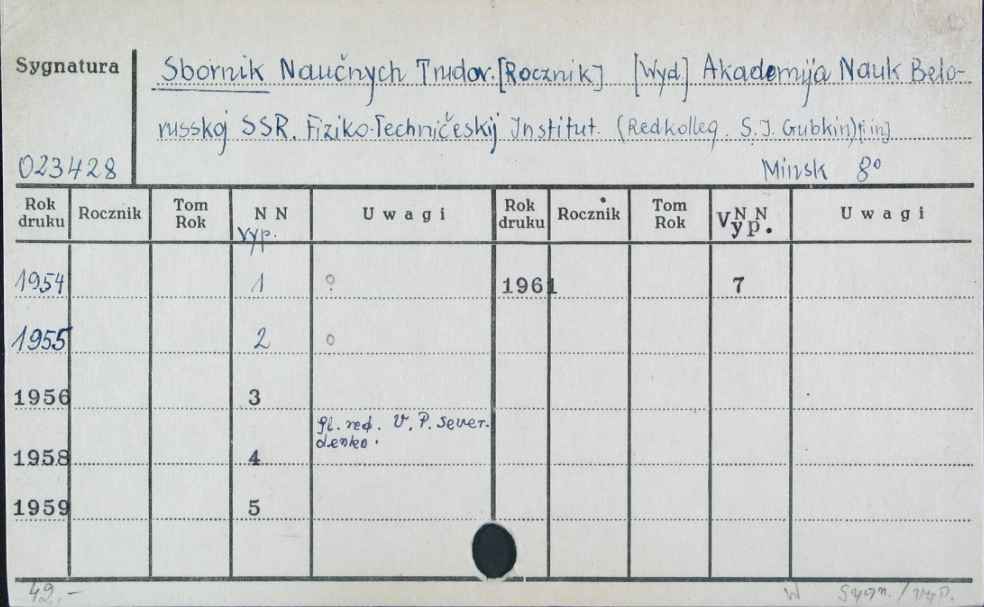 Sygnatura
Sbornik Naučnych Trudov. [Rocznik] [Wyd.] Akademija Nauk Belo-
russkoj SSR. Fiziko-Techničeskij Institut. (Redkolleg. S. I. Gubkin) [i in.]
023428 Minsk 8°
Rok druku Rocznik Tom Rok N N Vyp. Uwagi Rok druku Rocznik Tom Rok N N Vyp. Uwagi
1954 1 1961 7
1955 2
1956 3
gl. red. V. P. Sever-
denko.
1958 4
1959 5
42.- W Sygn. / vyp.